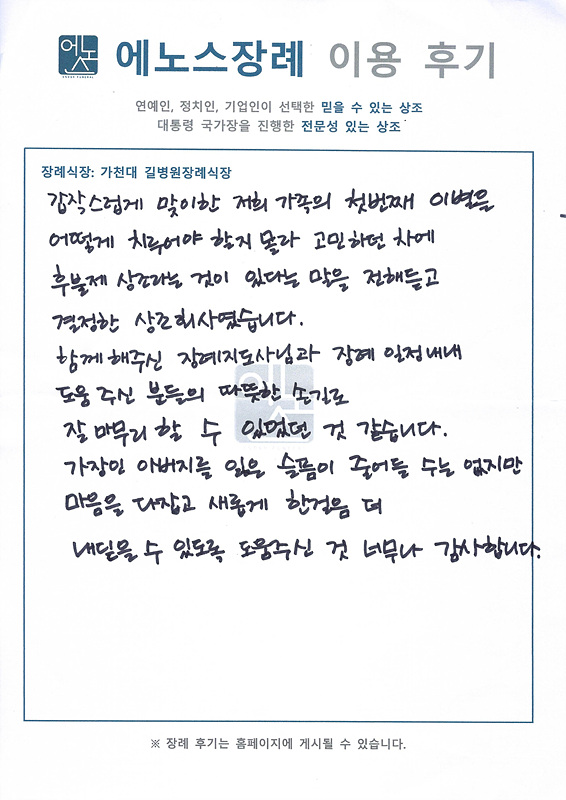 에노스
에노스장례 이용 후기
연예인, 정치인, 기업인이 선택한 믿을 수 있는 상조
대통령 국가장을 진행한 전문성 있는 상조
장례식장: 가천대 길병원장례식장
갑작스럽게 맞이한 저희 가족의 첫번째 이별을
어떻게 치루어야 할지 몰라 고민하던 차에
후불제 상조라는 것이 있다는 말을 전해듣고
결정한 상조회사였습니다.
함께해주신 장례지도사님과 장례 일정내내
도움 주신 분들의 따뜻한 손길로
잘 마무리 할 수 있었던 것 같습니다.
가장인 아버지를 잃은 슬픔이 줄어들 수는 없지만
마음을 다잡고 새롭게 한걸음 더
내딛을 수 있도록 도움주신 것 너무나 감사합니다.
※ 장례 후기는 홈페이지에 게시될 수 있습니다.